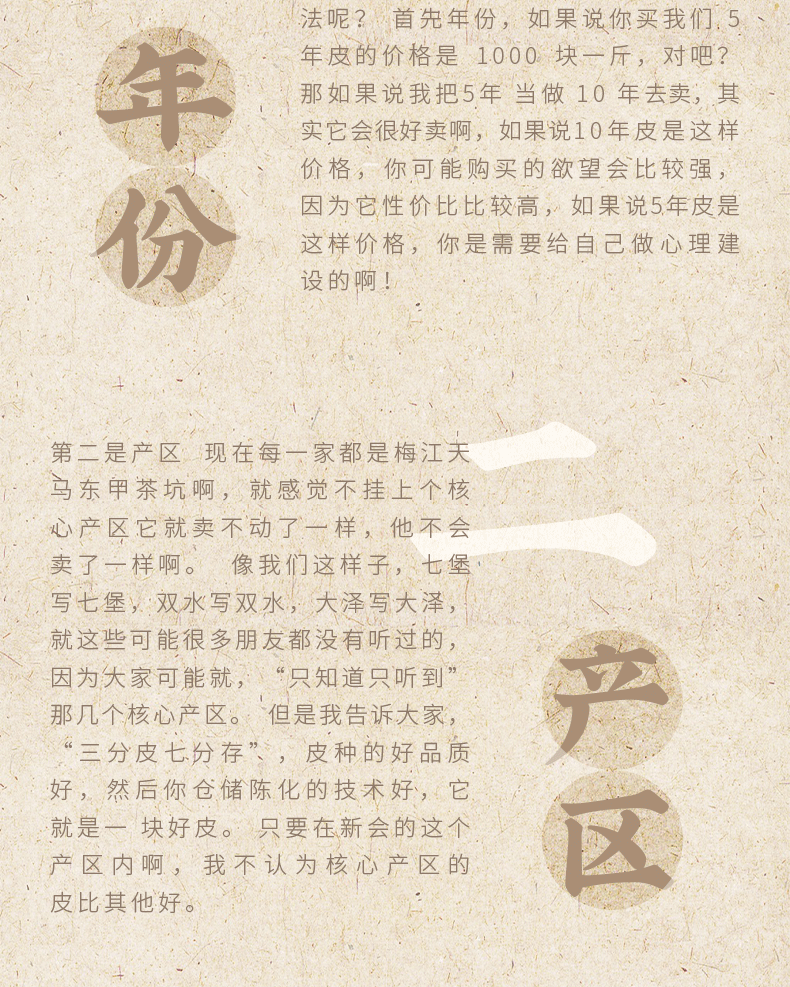 法呢？ 首先年份，如果说你买我们 5
年皮的价格是 1000 块一斤，对吧？
那如果说我把5年 当做 10 年去卖，其
实它会很好卖啊，如果说10年皮是这样
价格，你可能购买的欲望会比较强，
因为它性价比比较高，如果说5年皮是
这样价格，你是需要给自己做心理建
设的啊！
年
份
二
第二是产区 现在每一家都是梅江天
马东甲茶坑啊，就感觉不挂上个核
心产区它就卖不动了一样，他不会
卖了一样啊。 像我们这样子，七堡
写七堡，双水写双水，大泽写大泽，
就这些可能很多朋友都没有听过的，
因为大家可能就，“只知道只听到”
那几个核心产区。 但是我告诉大家，
“三分皮七分存”、，皮种的好品质
好，然后你仓储陈化的技术好，它
就是一 块好皮。 只要在新会的这个
产区内啊，我不认为核心产区的
皮比其他好。
产
区